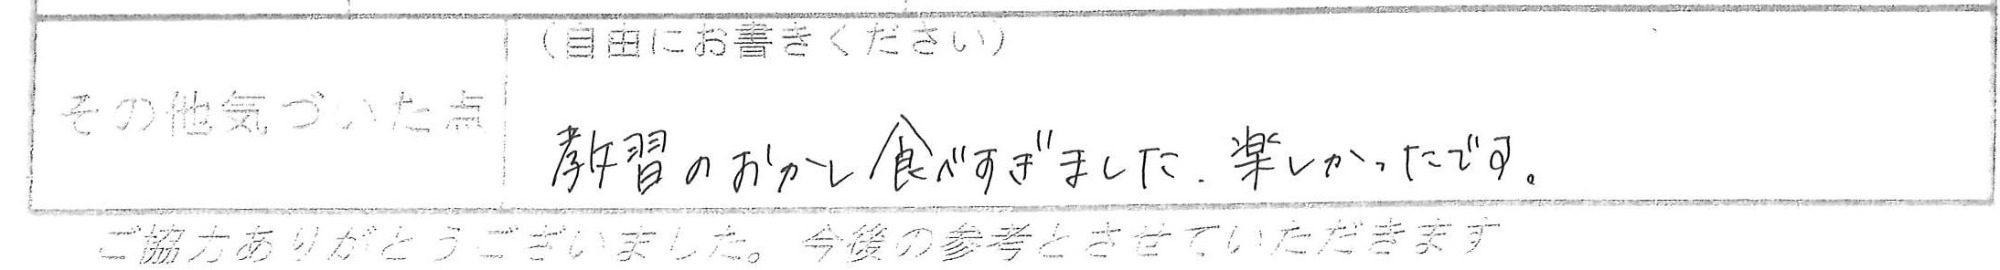 (自由にお書きください)
その他気づいた点
教習のおかし食べすぎました. 楽しかったです。
ご協力ありがとうございました。今後の参考とさせていただきます